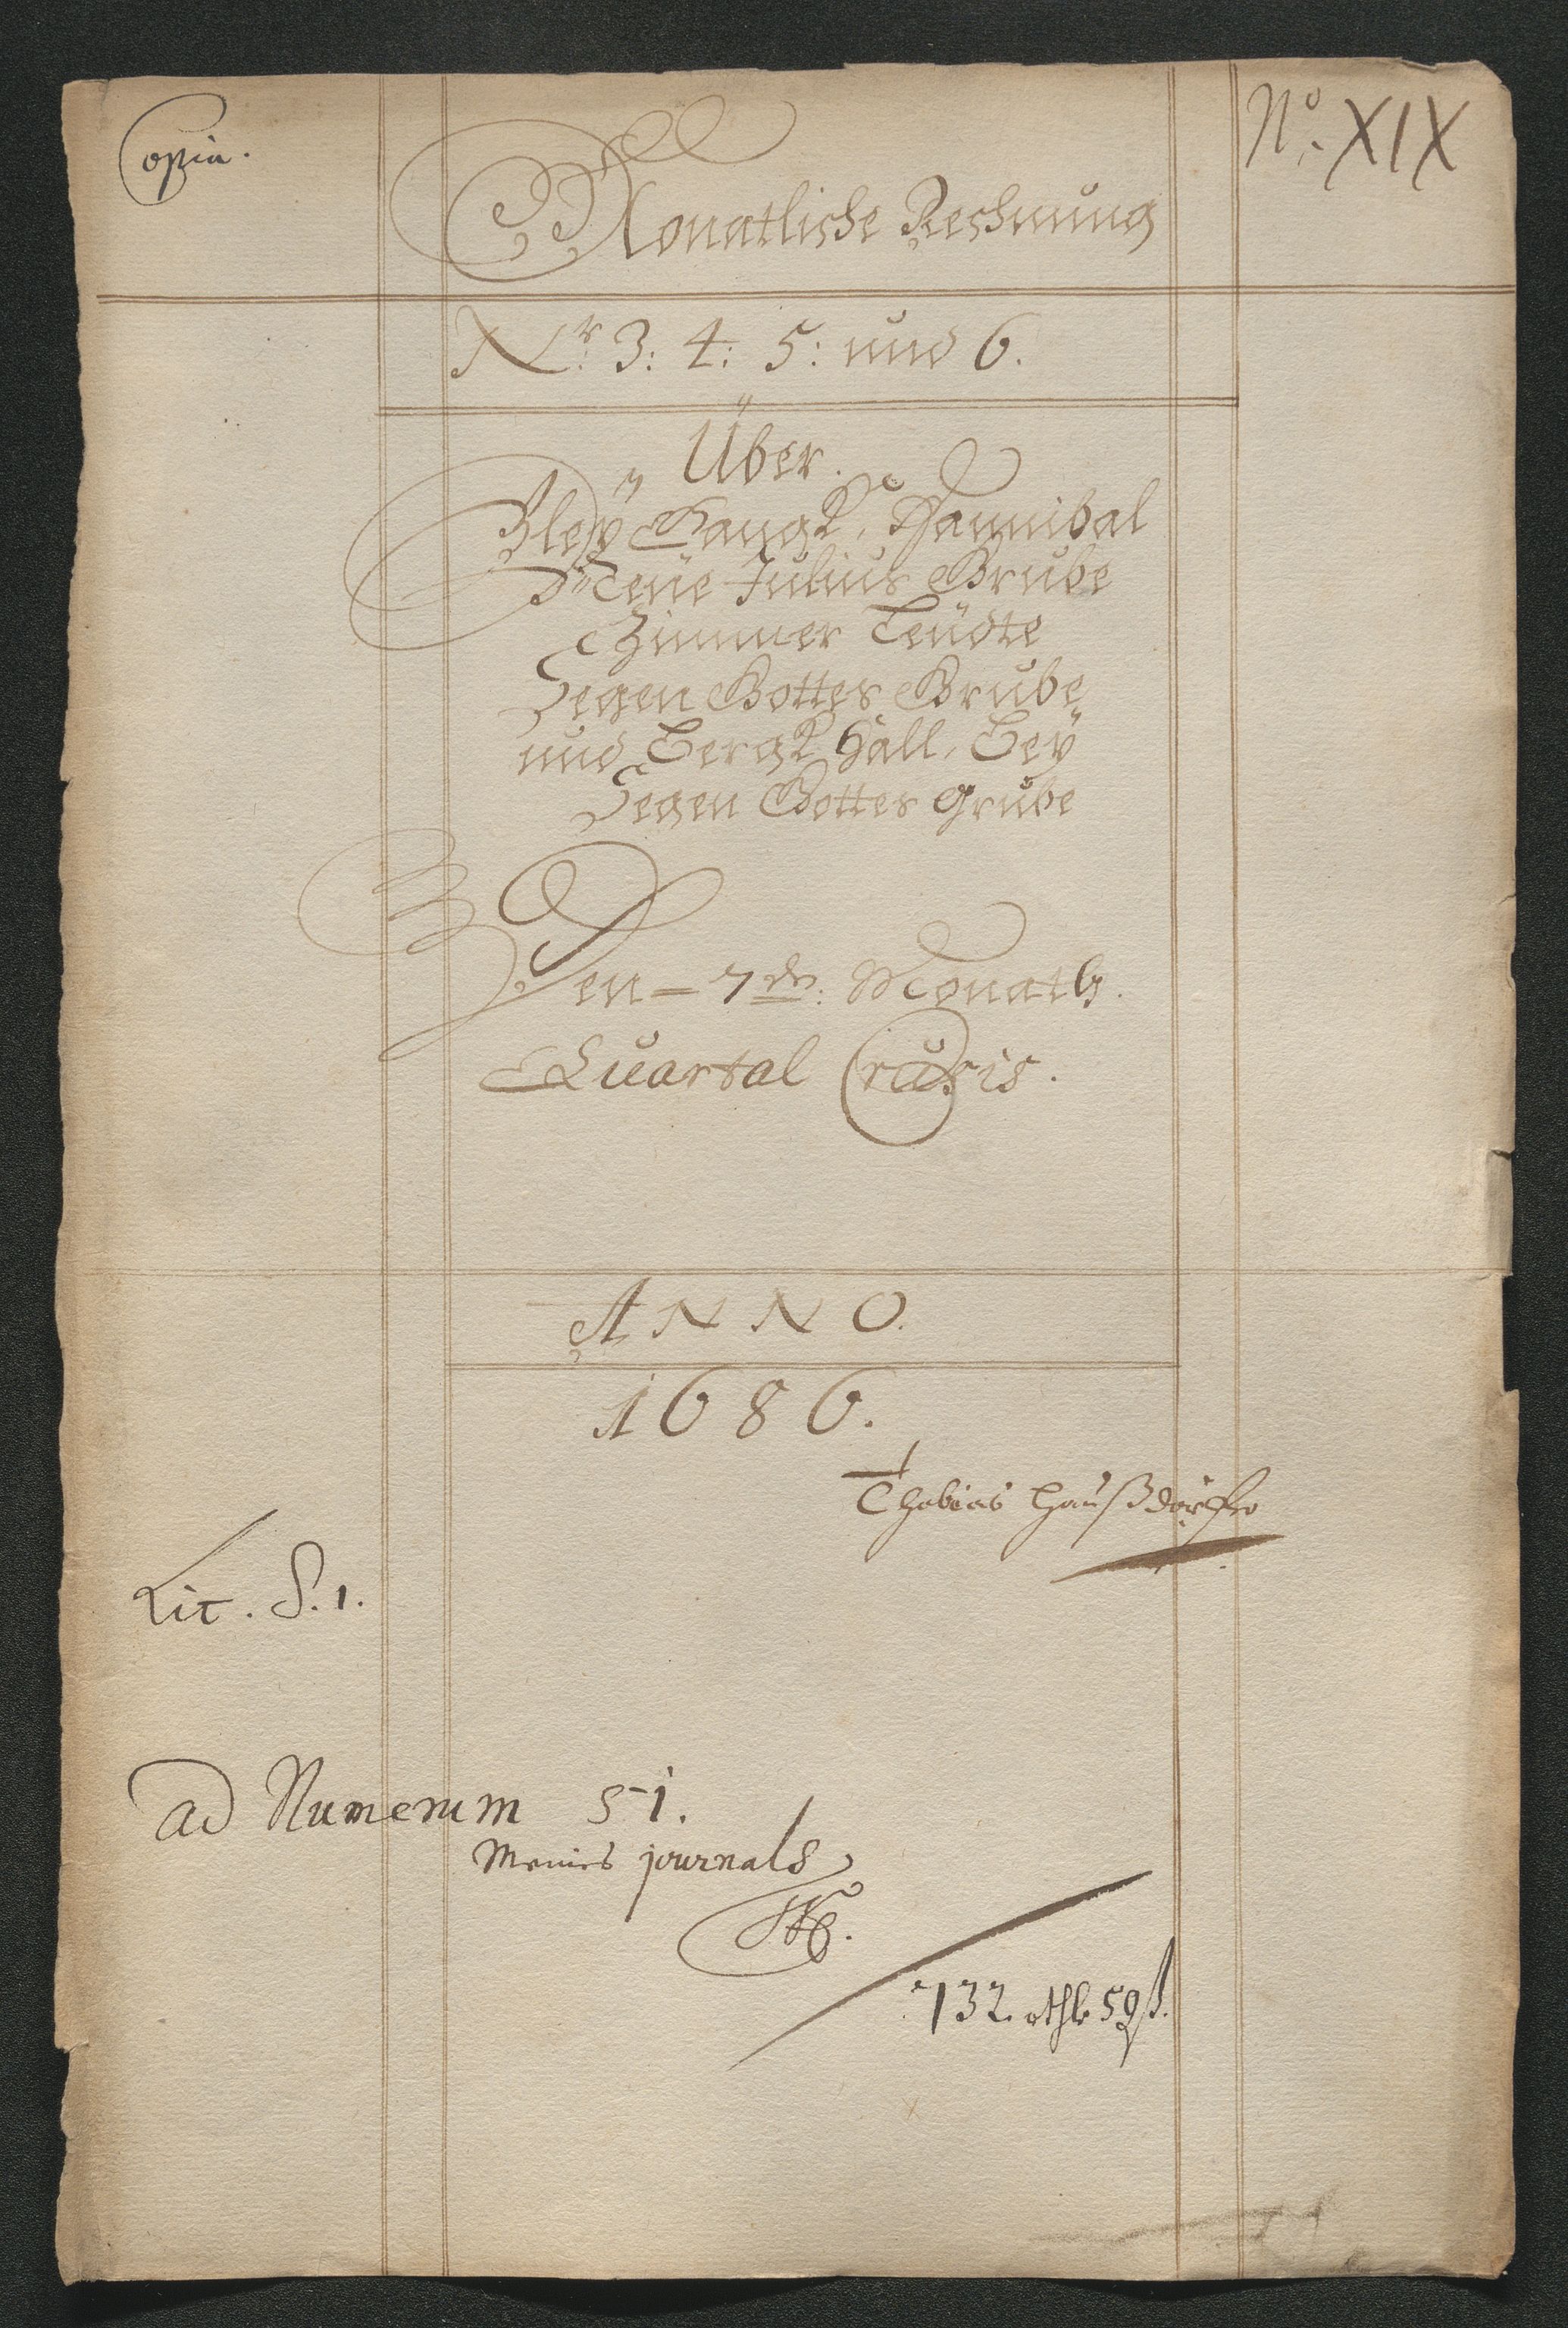 Copia.
No. XIX
Monatlishe Reshnung
Nr: 3: 4: 5: und 6.
Über.
Bleÿ Gangk, Hannibal
Neüe Julius Grube
Zimmer Leüdte
Segen Gottes Grube
und Bergk hall, beÿ
Segen Gottes grube
Den 7den: Monath.
Quartal Crucis.
ANNO.
1686.
Thobias Haußdörffer
Lit. S. 1.
ad Numerum 51.
Meines journals
732. rthlr 59 ß.